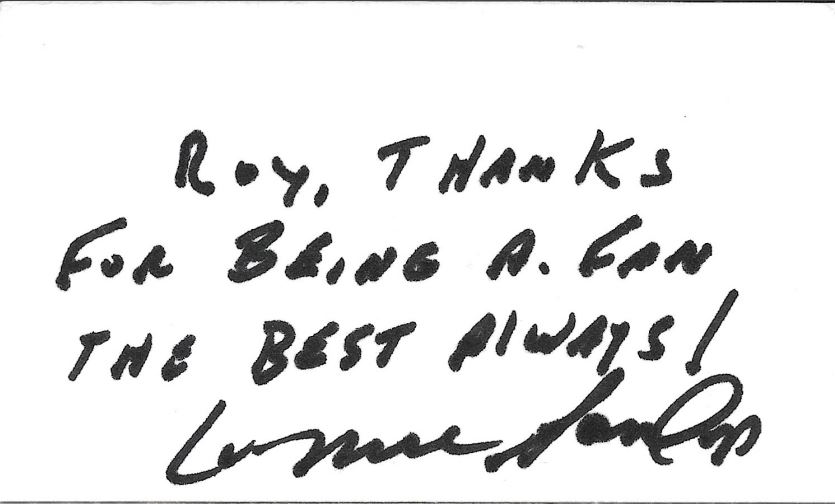 ROY, THANKS
FOR BEING A. FAN
THE BEST AlWAYS!